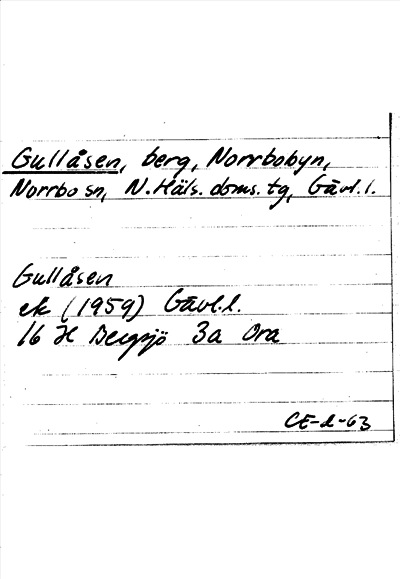 Gullåsen, berg, Norrbobyn,
Norrbo sn, N. Häls. doms. tg, Gävl. l.
Gullåsen
ek (1959) Gävl. l.
16 H Bergsjö 3a Ora
CE-2-63